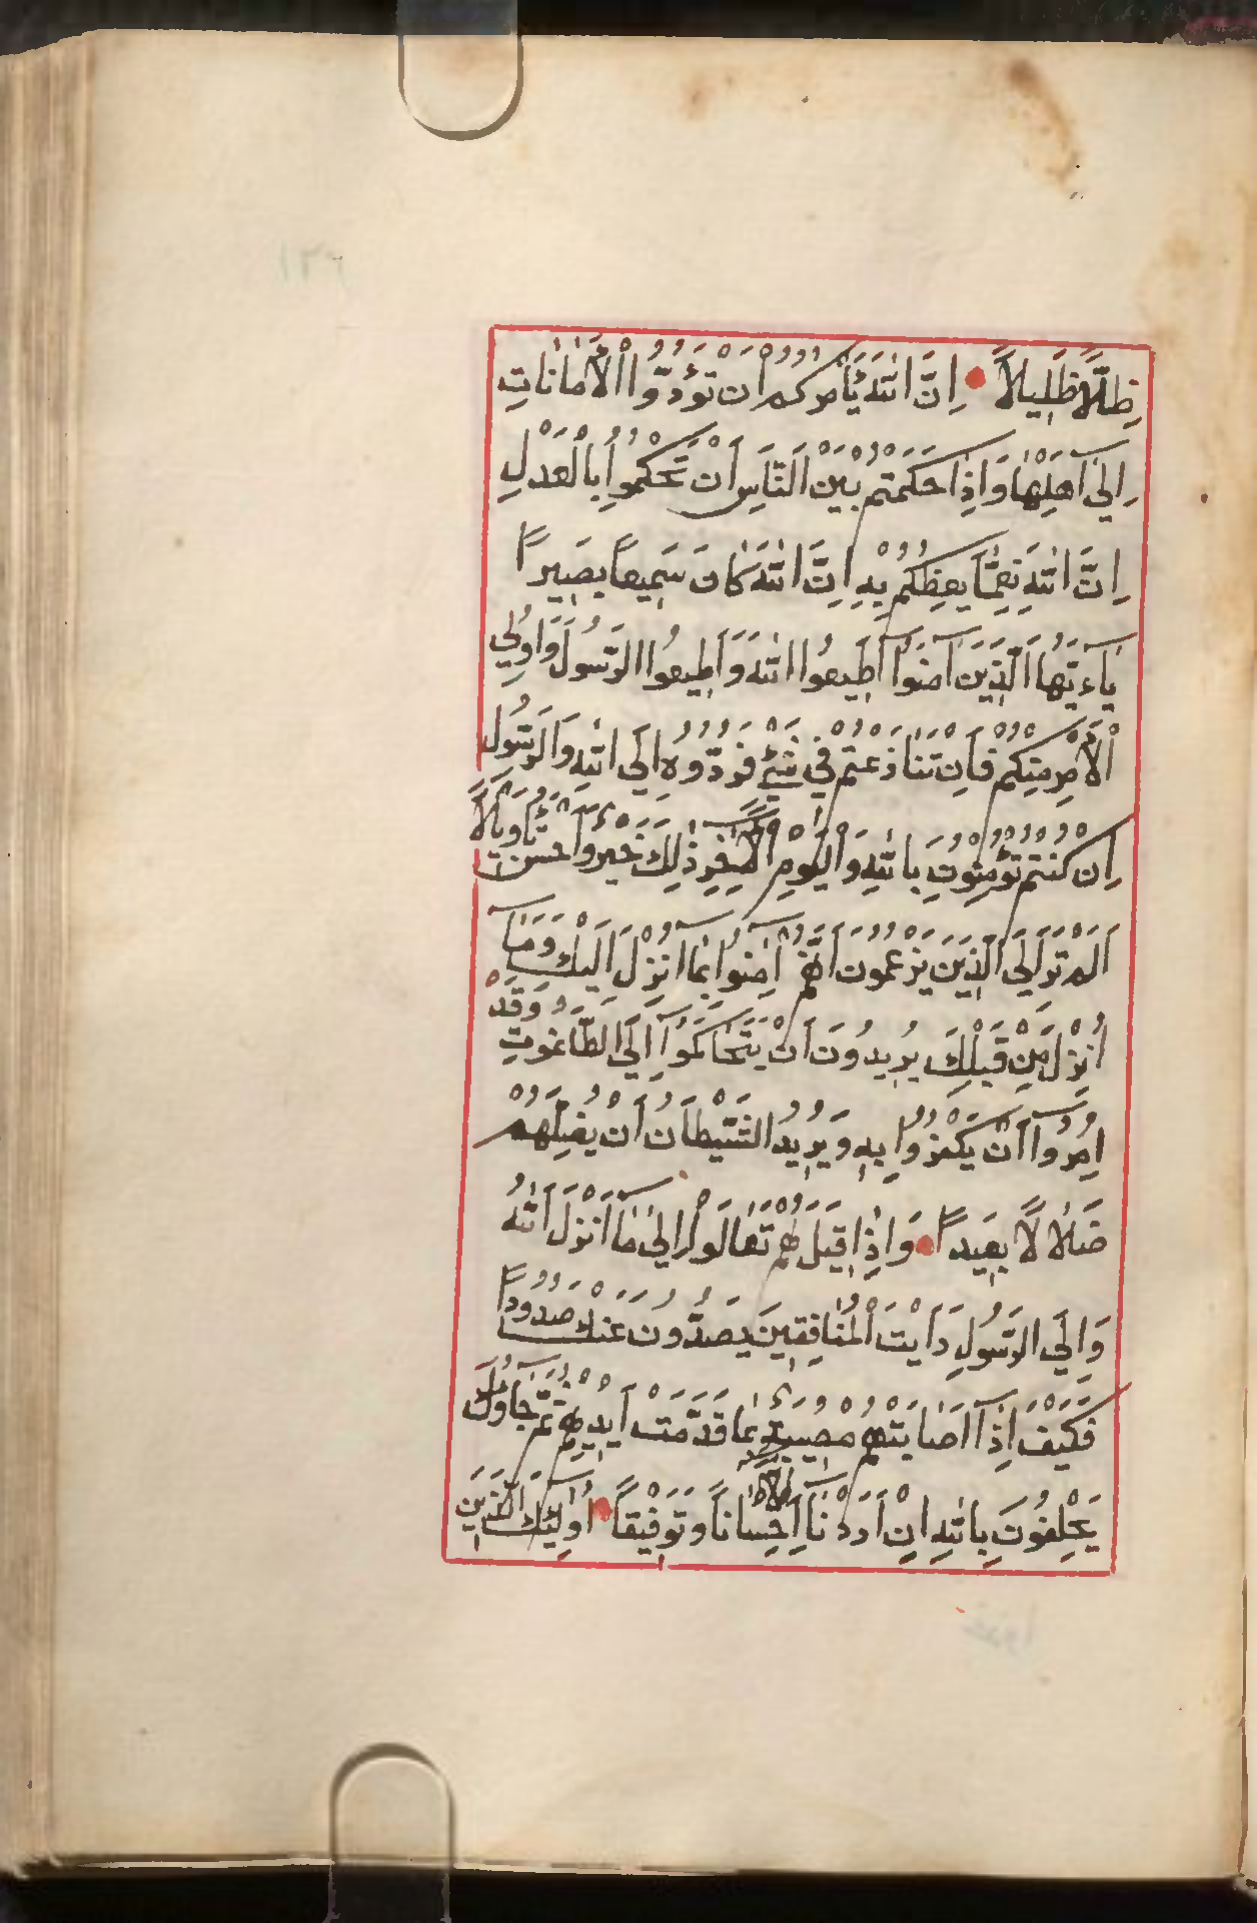 ظِلًّا ظَلِيلًا اِنَّ اللّٰهَ يَأْمُرُكُمْ اَنْ تُؤَدُّوا الْأَمَانَاتِ
اِلَىٰ اَهْلِهَا وَاِذَا حَكَمْتُمْ بَيْنَ النَّاسِ اَنْ تَحْكُمُوا بِالْعَدْلِ
اِنَّ اللّٰهَ نِعِمَّا يَعِظُكُمْ بِهِ اِنَّ اللّٰهَ كَانَ سَمِيعًا بَصِيرًا
يَآءَيُّهَا الَّذِينَ اٰمَنُوا اَطِيعُوا اللّٰهَ وَاَطِيعُوا الرَّسُولَ وَاُولِي
الْأَمْرِ مِنْكُمْ فَاِنْ تَنَازَعْتُمْ فِي شَيْءٍ فَرُدُّوهُ اِلَى اللّٰهِ وَالرَّسُولِ
اِنْ كُنْتُمْ تُؤْمِنُونَ بِاللّٰهِ وَالْيَوْمِ الْاٰخِرِ ذٰلِكَ خَيْرٌ وَاَحْسَنُ تَأْوِيلًا
اَلَمْ تَرَ اِلَى الَّذِينَ يَزْعُمُونَ اَنَّهُمْ اٰمَنُوا بِمَا اُنْزِلَ اِلَيْكَ وَمَا
اُنْزِلَ مِنْ قَبْلِكَ يُرِيدُونَ اَنْ يَتَحَاكَمُوا اِلَى الطَّاغُوتِ وَقَدْ
اُمِرُوا اَنْ يَكْفُرُوا بِهِ وَيُرِيدُ الشَّيْطَانُ اَنْ يُضِلَّهُمْ
ضَلَالًا بَعِيدًا وَاِذَا قِيلَ لَهُمْ تَعَالَوْا اِلَىٰ مَا اَنْزَلَ اللّٰهُ
وَاِلَى الرَّسُولِ رَاَيْتَ الْمُنَافِقِينَ يَصُدُّونَ عَنْكَ صُدُودًا
فَكَيْفَ اِذَا اَصَابَتْهُمْ مُصِيبَةٌ بِمَا قَدَّمَتْ اَيْدِيهِمْ ثُمَّ جَاؤُكَ
يَحْلِفُونَ بِاللّٰهِ اِنْ اَرَدْنَا اِلَّا اِحْسَانًا وَتَوْفِيقًا اُولٰئِكَ الَّذِينَ